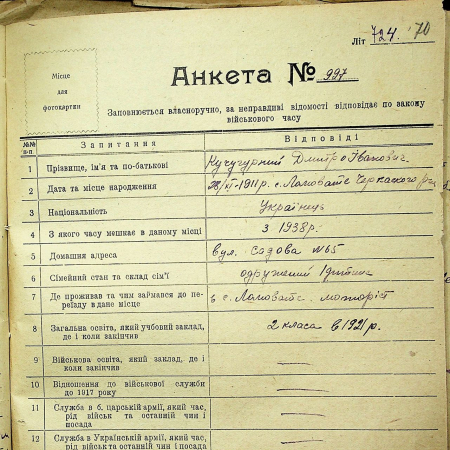 Літ 724. 70
Місце
для
фотокартки
Анкета № 997
Заповнюється власноручно, за неправдиві відомості відповідає по закому
військового часу
№№ п-п Запитання Відповіді
1 Прізвище, ім'я та по-батькові Кучугурний Дмитро Іванович.
2 Дата та місце народження 28/XI-1911р. с. Ломовате Черкаского р-ну
3 Національность Українець
4 З якого часу мешкає в даному місці з 1938р.
5 Домашня адреса вул. Садова №65
6 Сімейний стан та склад сім'ї одружений 1 дитина
7 Де проживав та чим займався до пе-
реїзду в дане місце в с. Ломовате.
8 Загальна освіта, який учбовий заклад,
де і коли закінчив 2 класа в 1921 р.
9 Військова освіта, який заклад, де і
коли закінчив —
10 Відношення до військової служби
до 1917 року —
11 Служба в б. царській армії, який час,
рід військ та останній чин і
посада —
12 Служба в Українській армії, який час,
рід військ та останній чин і посада —